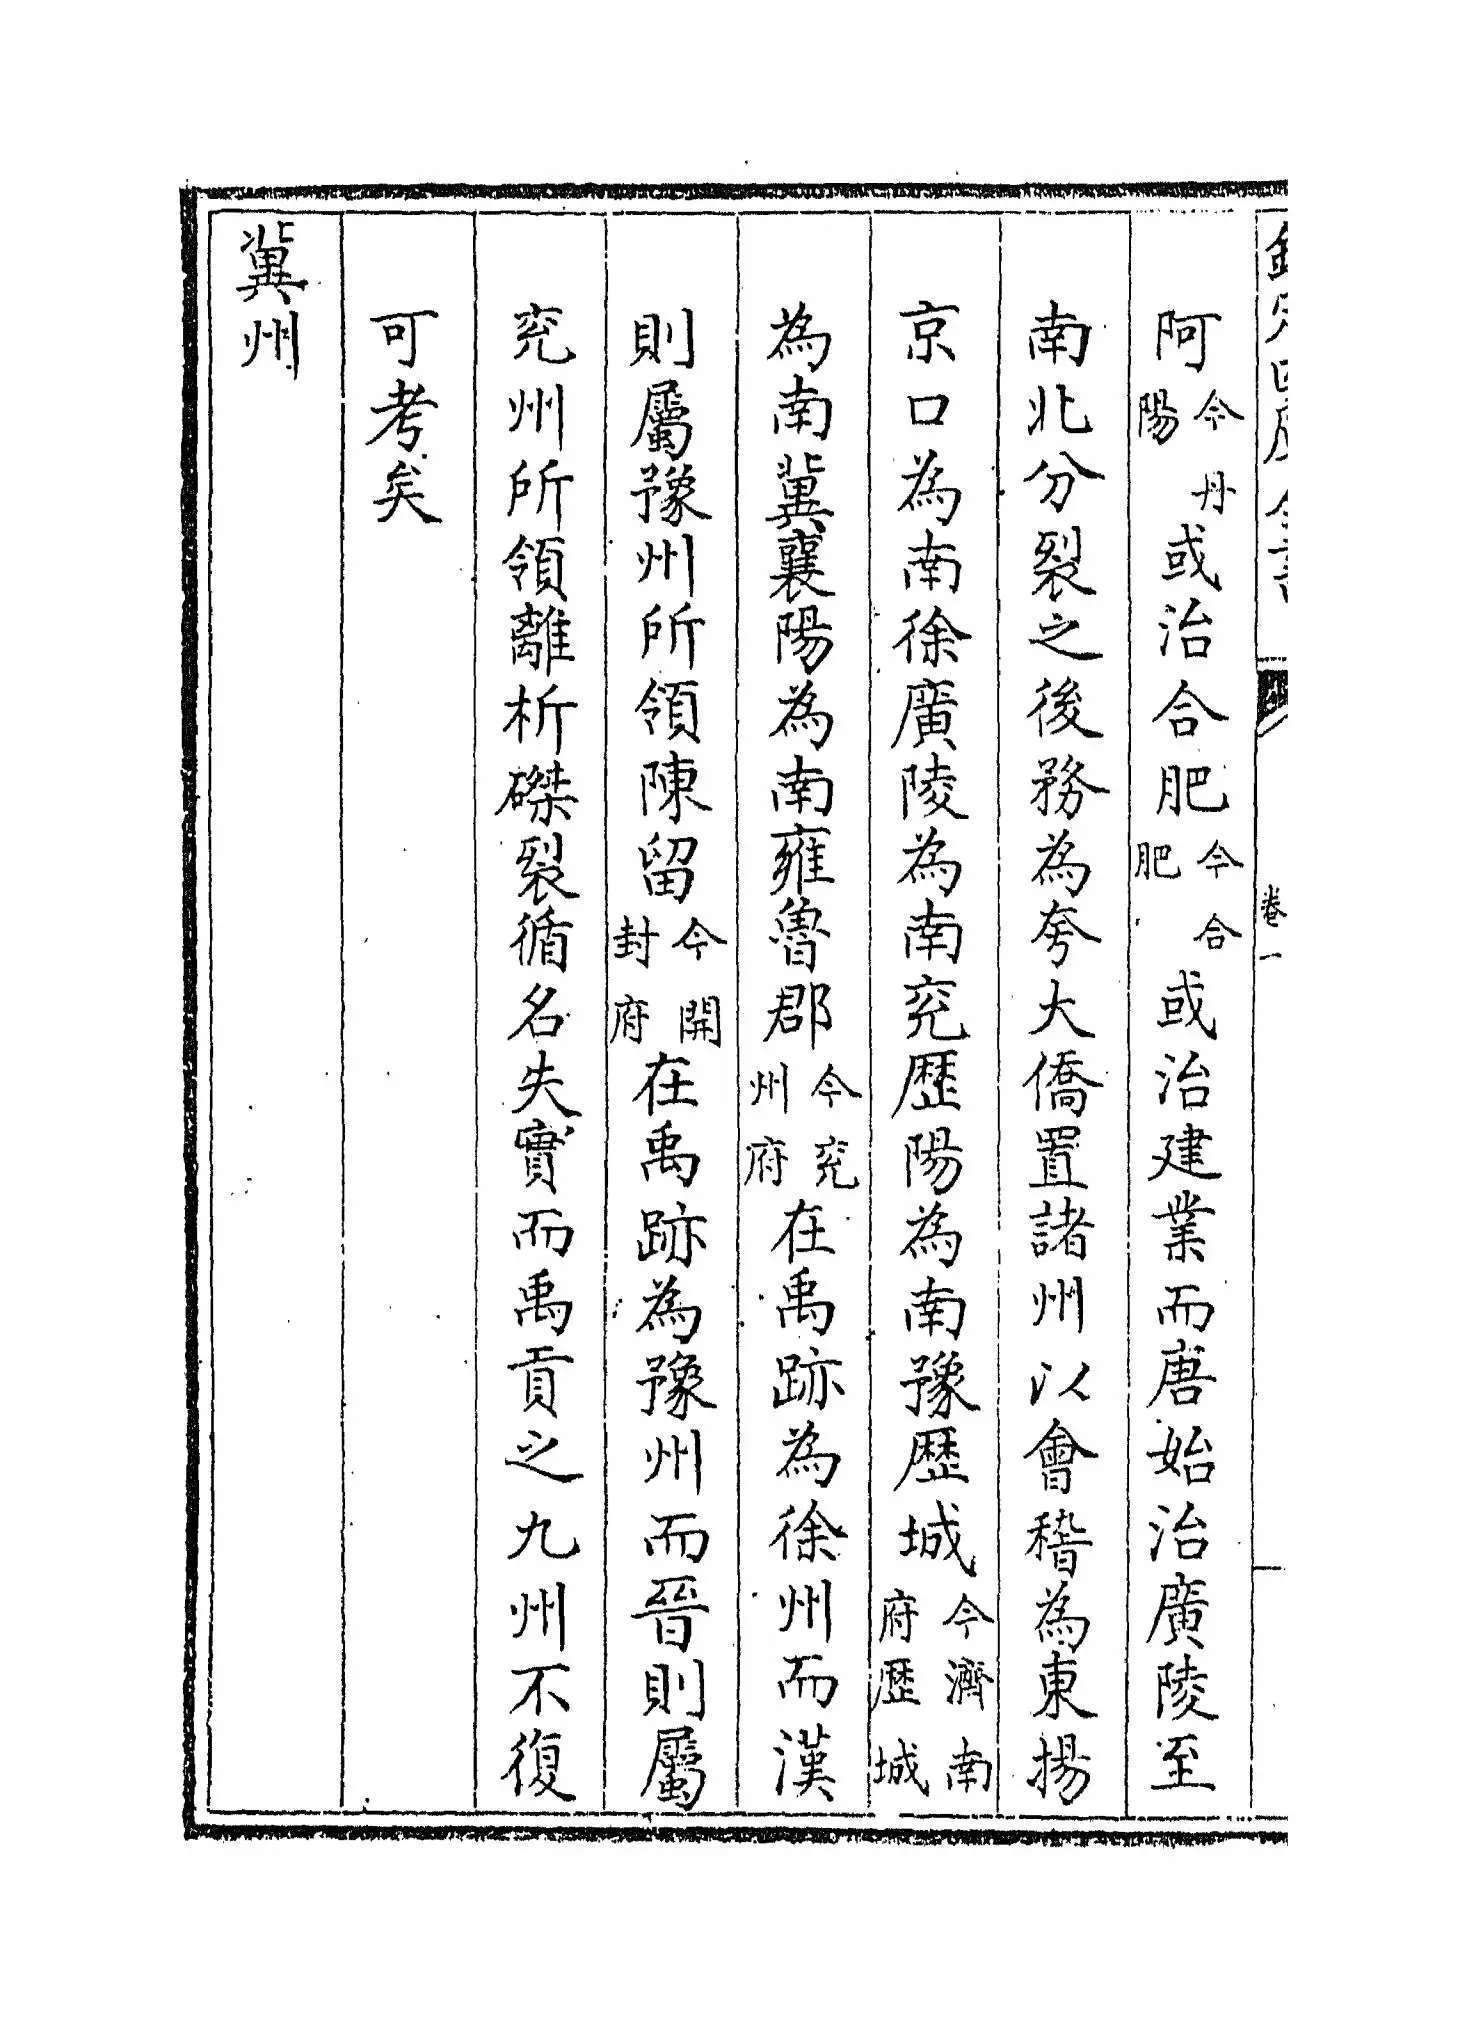 欽定四庫全書
卷一
阿今丹陽或治合肥今合肥或治建業而唐始治廣陵至
南北分裂之後務為夸大僑置諸州以會稽為東揚
京口為南徐廣陵為南兖歷陽為南豫歷城今濟南府歷城
為南冀襄陽為南雍魯郡今兖州府在禹跡為徐州而漢
則屬豫州所領陳留今開封府在禹跡為豫州而晉則屬
兖州所領離析磔裂循名失實而禹貢之九州不復
可考矣
冀州